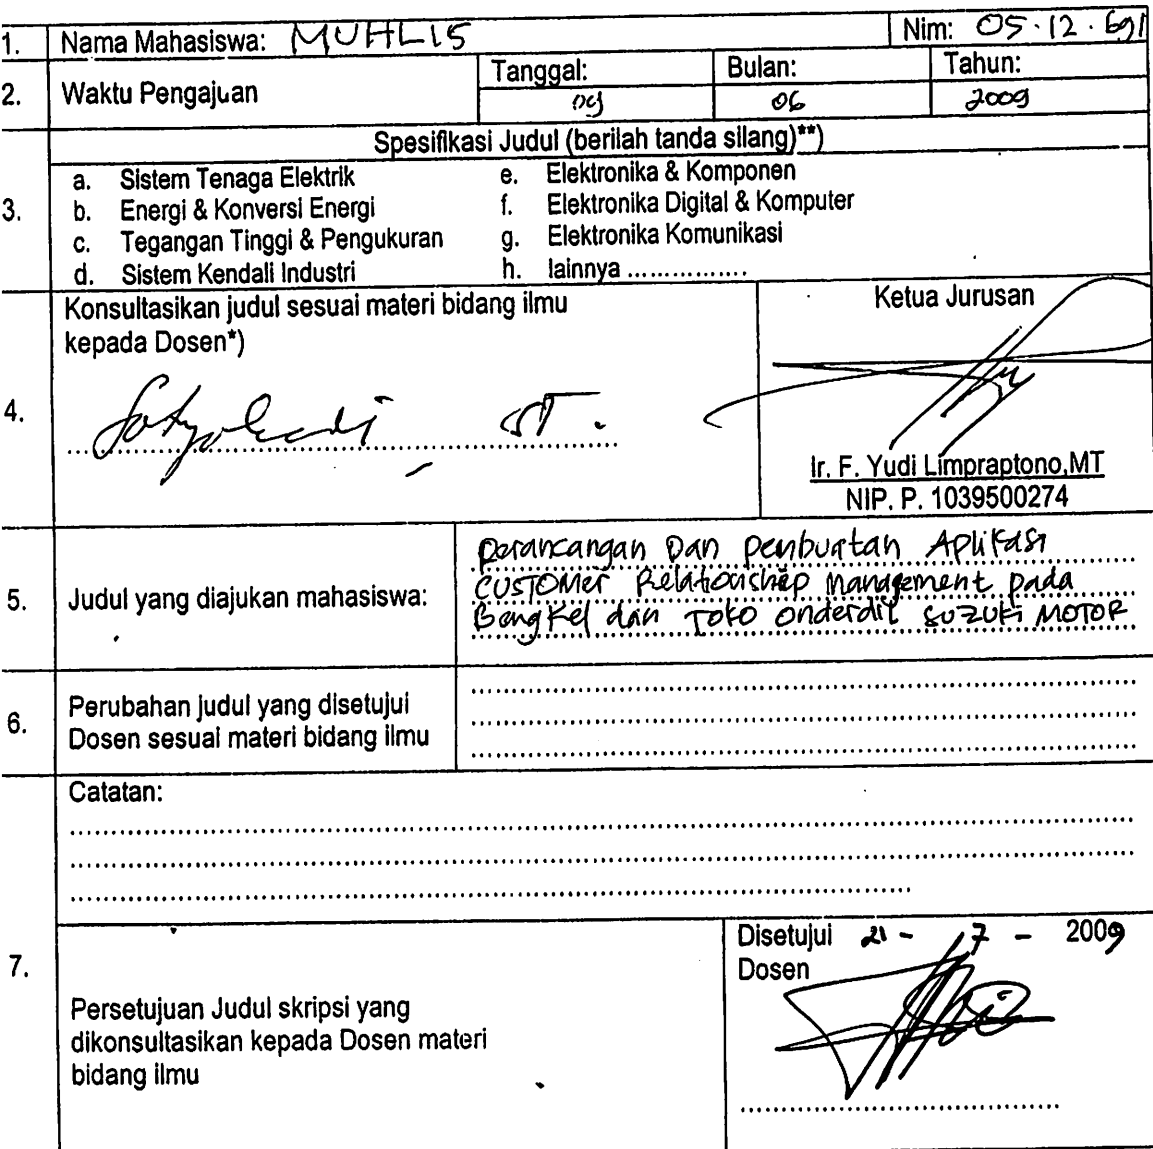 1. Nama Mahasiswa: MUHLIS Nim: 05.12.691
2. Waktu Pengajuan Tanggal: Bulan: Tahun:
09 06 2009
Spesifikasi Judul (berilah tanda silang)**)
3.
a. Sistem Tenaga Elektrik e. Elektronika & Komponen
b. Energi & Konversi Energi f. Elektronika Digital & Komputer
c. Tegangan Tinggi & Pengukuran g. Elektronika Komunikasi
d. Sistem Kendali Industri h. lainnya ................
4.
Konsultasikan judul sesuai materi bidang ilmu
kepada Dosen*)
ST.
Ketua Jurusan
Ir. F. Yudi Limpraptono,MT
NIP. P. 1039500274
5. Judul yang diajukan mahasiswa:
Perancangan Dan Penbuatan Aplikasi
CUSTOMer Relationship Management pada
Bengkel dan Toko onderdil SUZUKI MOTOR
6.
Perubahan judul yang disetujui
Dosen sesuai materi bidang ilmu
Catatan:
7.
Persetujuan Judul skripsi yang
dikonsultasikan kepada Dosen materi
bidang ilmu
Disetujui 21 - 7 - 2009
Dosen